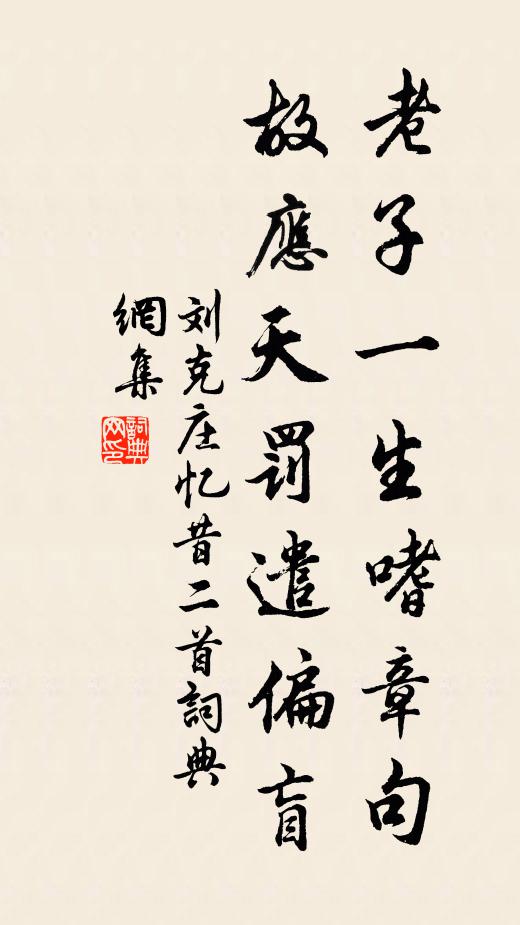 老子一生嗜章句
故應天罰遣偏盲
刘克庄忆昔二首詞典
網集
詞典網印